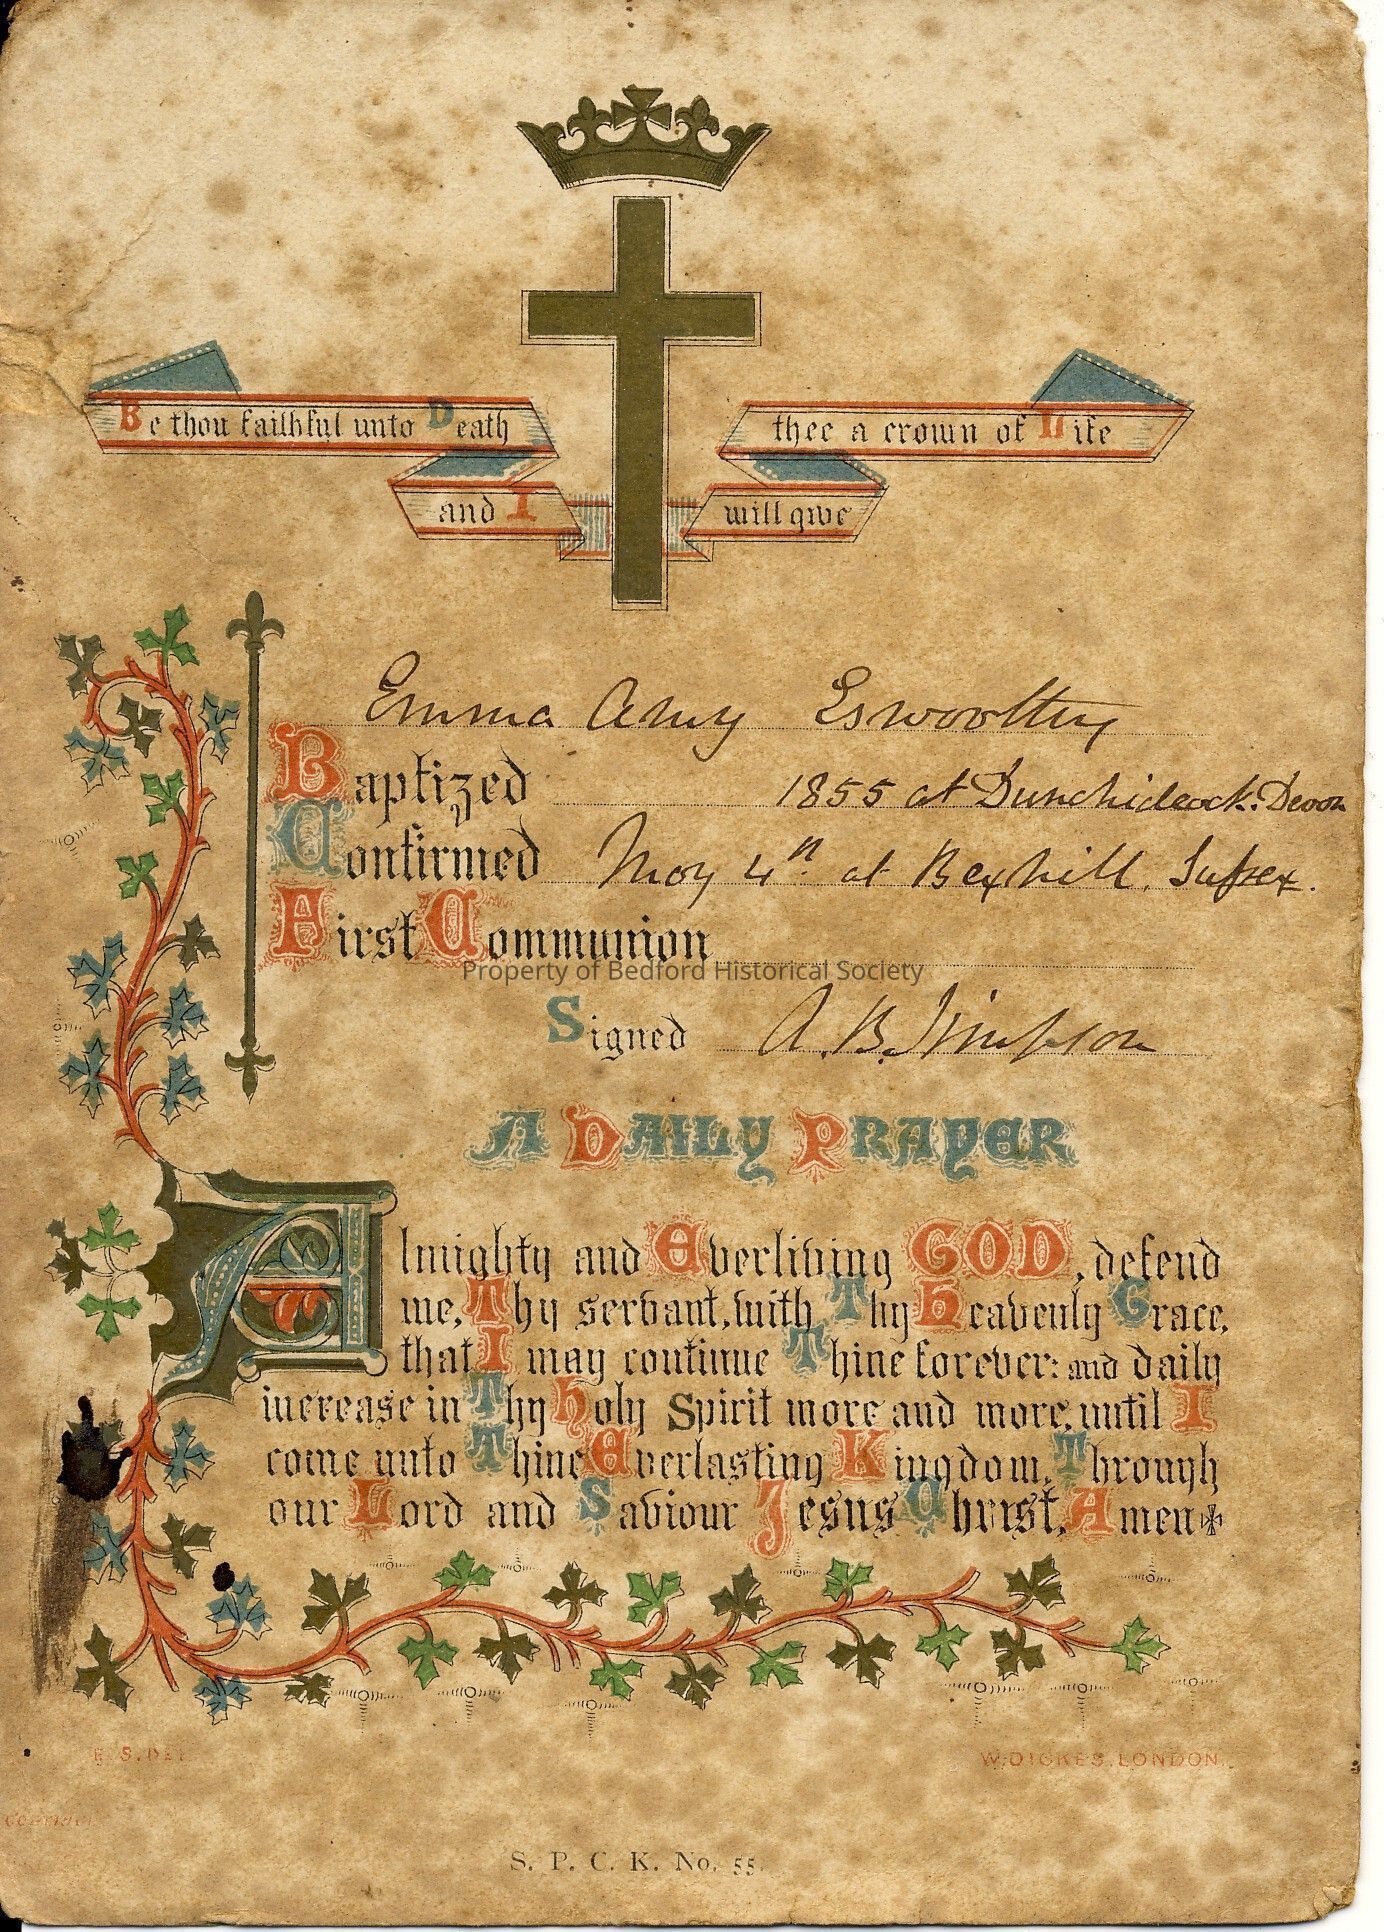 Be thou faithful unto Death
and I
will give
thee a crown of Life
Emma Amy Esworthy
Baptized 1855 at Dunchideock. Devon
Confirmed May 4th. at Bexhill. Sussex.
First Communion
Property of Bedford Historical Society
Signed A. B. Simpson
A DAILY PRAYER
Almighty and Everliving GOD, defend
me, Thy servant, with Thy Heavenly Grace,
that I may continue Thine forever: and daily
increase in Thy Holy Spirit more and more, until I
come unto Thine Everlasting Kingdom, Through
our Lord and Saviour Jesus Christ, Amen
E. S. DEL
W. DICKES. LONDON.
S. P. C. K. No. 55.